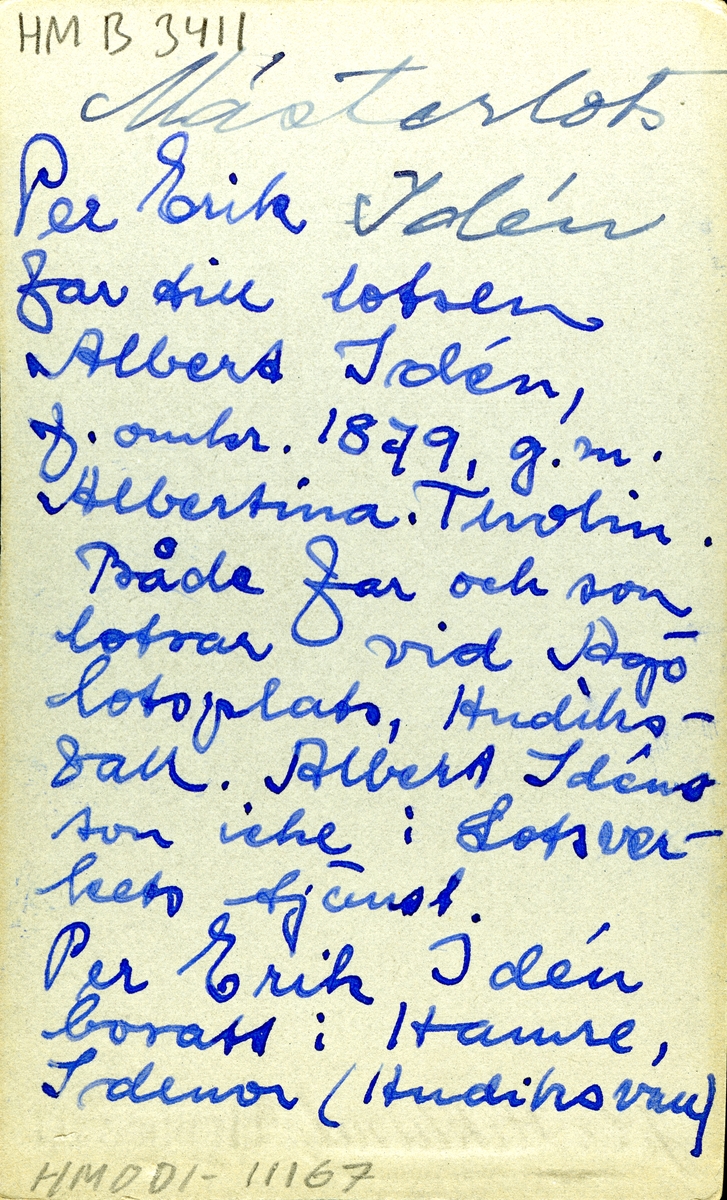 HM B 3411
Mästerlots
Per Erik Idén
far till lotsen
Albert Idén,
f. omkr. 1879, g.m.
Albertina Tivolin.
Både far och son
lotsar vid Agö
lotsplats, Hudiks-
vall. Albert Idéns
son icke i Lotsver-
kets tjänst.
Per Erik Idén
bosatt i Hamre,
Idenor (Hudiksvall)
HMDDI-11167